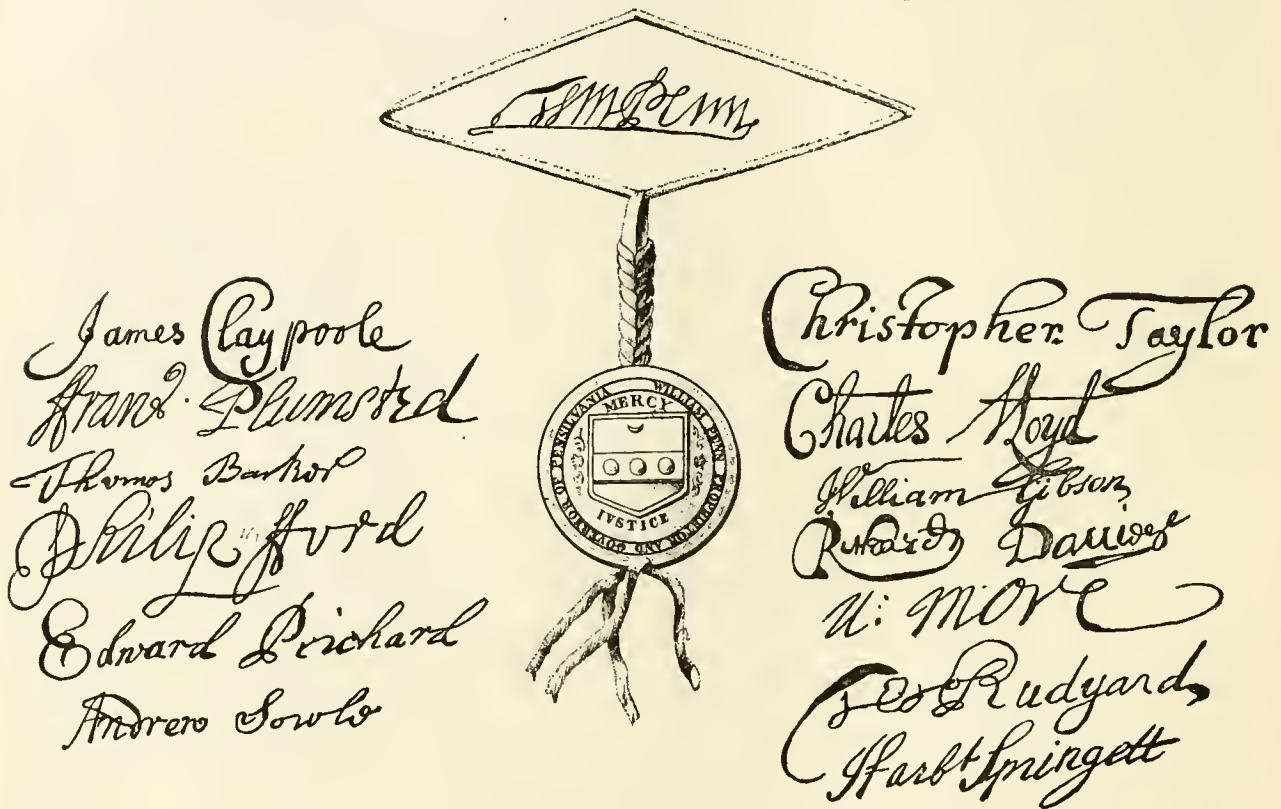 Wm Penn
James Claypoole
ffranc. Plumsted
Thomas Barker
Philip fford
Edward Prichard
Andrew Sowle
WILLIAM PENN PROPRIETOR AND GOVERNOR OF PENSILVANIA
MERCY
IVSTICE
Christopher Taylor
Charles Lloyd
William Gibson
Richard Davies
N: More
Tho Rudyard
Harbt Springett